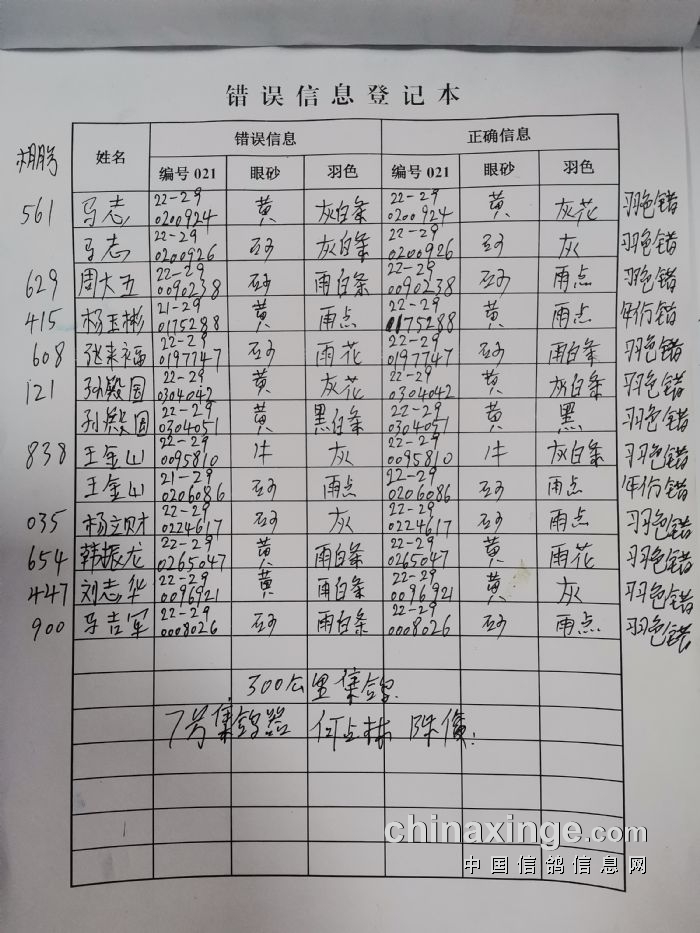 错误信息登记本
棚号 姓名 错误信息 正确信息
编号 021 眼砂 羽色 编号 021 眼砂 羽色
561 马志 22-29 0200924 黄 灰白条 22-29 0200924 黄 灰花 羽色错
马志 22-29 0200926 砂 灰白条 22-29 0200926 砂 灰 羽色错
629 周大五 22-29 0090238 砂 雨白条 22-29 0090238 砂 雨点 羽色错
415 杨玉彬 21-29 0175288 黄 雨点 22-29 0175288 黄 雨点 年份错
608 张来福 22-29 0197747 砂 雨花 22-29 0197747 砂 雨白条 羽色错
121 孙殿国 22-29 0304042 黄 灰花 22-29 0304042 黄 灰白条 羽色错
孙殿国 22-29 0304051 黄 黑白条 22-29 0304051 黄 黑 羽色错
838 王金山 22-29 0095810 牛 灰 22-29 0095810 牛 灰白条 羽色错
王金山 21-29 0206086 砂 雨点 22-29 0206086 砂 雨点 年份错
035 杨立财 22-29 0224617 砂 灰 22-29 0224617 砂 雨点 羽色错
654 韩振龙 22-29 0265047 黄 雨白条 22-29 0265047 黄 雨花 羽色错
447 刘志华 22-29 0096921 黄 雨白条 22-29 0096921 黄 灰 羽色错
900 马吉军 22-29 0008026 砂 雨白条 22-29 0008026 砂 雨点 羽色错
300公里集鸽
7号集鸽器
chinaxinge.com
中国信鸽信息网